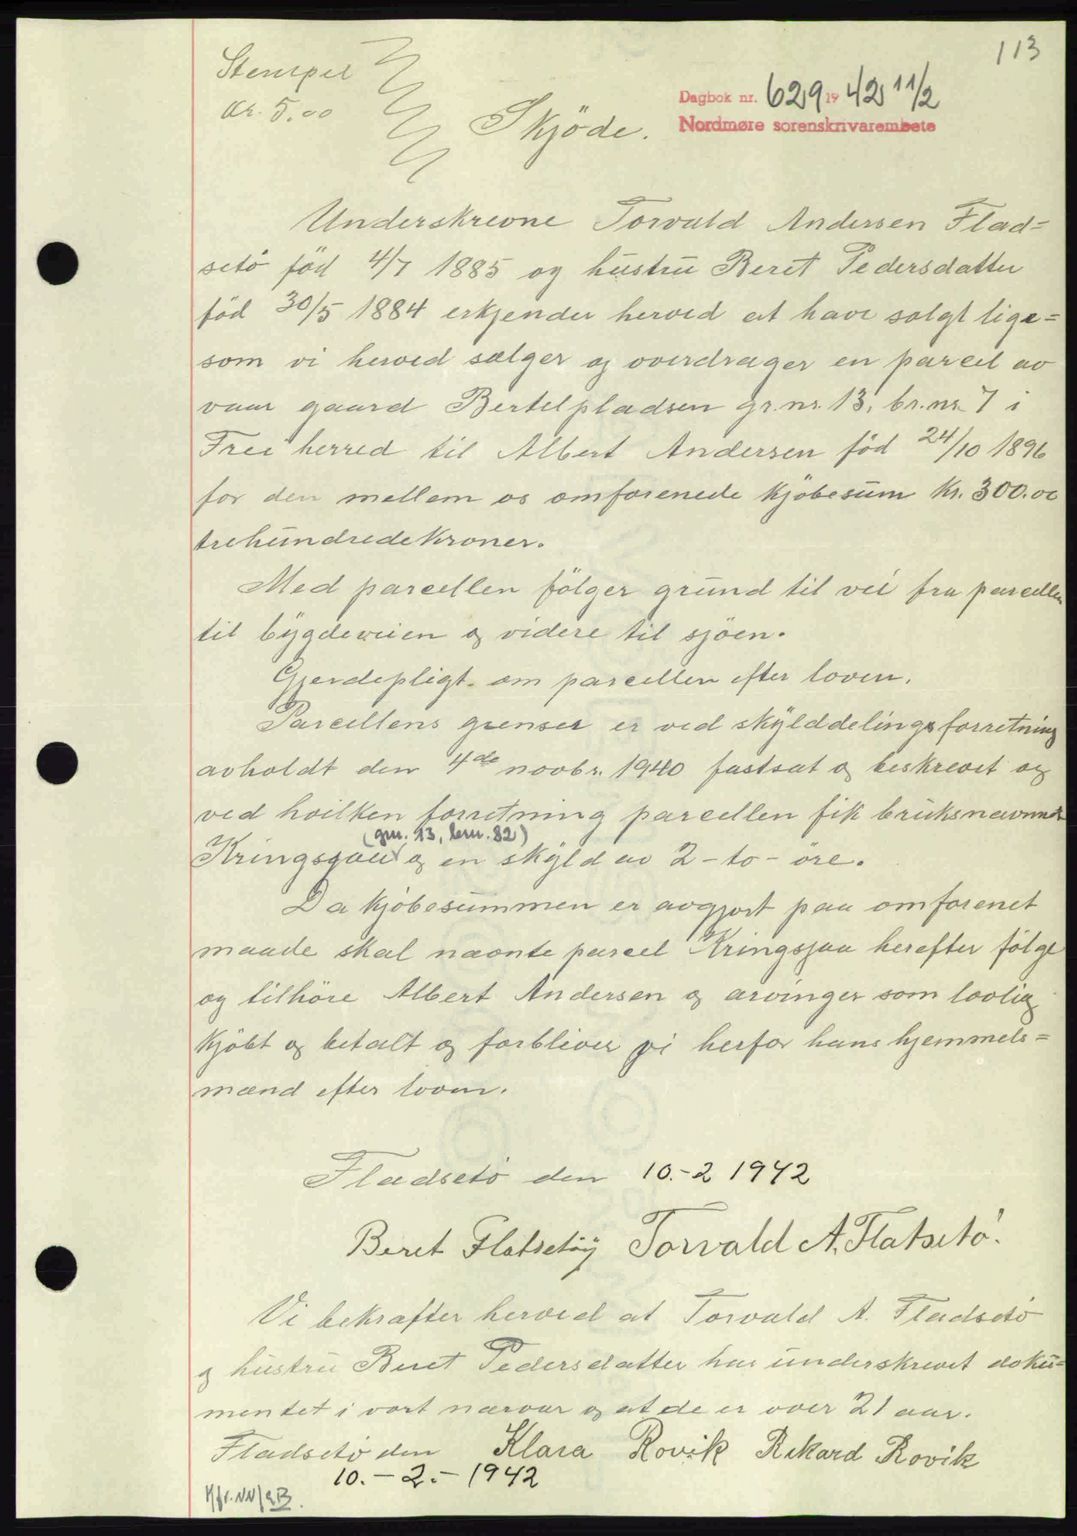 113
Stempel
Kr. 5.00
Dagbok nr. 629 1942 11/2
Nordmøre sorenskrivarembete
Skjöde.
Underskrevne Torvald Andersen Flad=
setö föd 4/7 1885 og hustru Beret Pedersdatter
föd 30/5 1884 erkjender herved at have solgt lige=
som vi herved sælger og overdrager en parcel av
vaar gaard Bertelpladsen gr.nr. 13, br.nr. 7 i
Frei herred til Albert Andersen föd 24/10 1896
for den mellem os omforenede kjöbesum kr. 300.00
trehundredekroner.
Med parcellen fölger grund til vei fra parcellen
til bygdeveien og videre til sjöen.
Gjerdepligt om parcellen efter loven.
Parcellens grenser er ved skylddelingsforretning
avholdt den 4de novbr. 1940 fastsat og beskrevet og
ved hvilken forretning parcellen fik bruksnavnet
(gnr. 13, brnr. 82)
Kringsjaa og en skyld av 2-to-öre.
Da kjöbesummen er avgjort paa omforenet
maade skal nævnte parcel Kringsjaa herefter fölge
og tilhöre Albert Andersen og arvinger som lovlig
kjöbt og betalt og forbliver vi herfor hans hjemmels=
mænd efter loven.
Fladsetö den 10.-2 1942
Beret Flatsetöy Torvald A. Flatsetö.
Vi bekræfter herved at Torvald A. Fladsetö
og hustru Beret Pedersdatter har underskrevet doku=
mentet i vort nærvær og at de er over 21 aar.
Fladsetö den Klara Rovik Rikard Rovik
10.-2.-1942